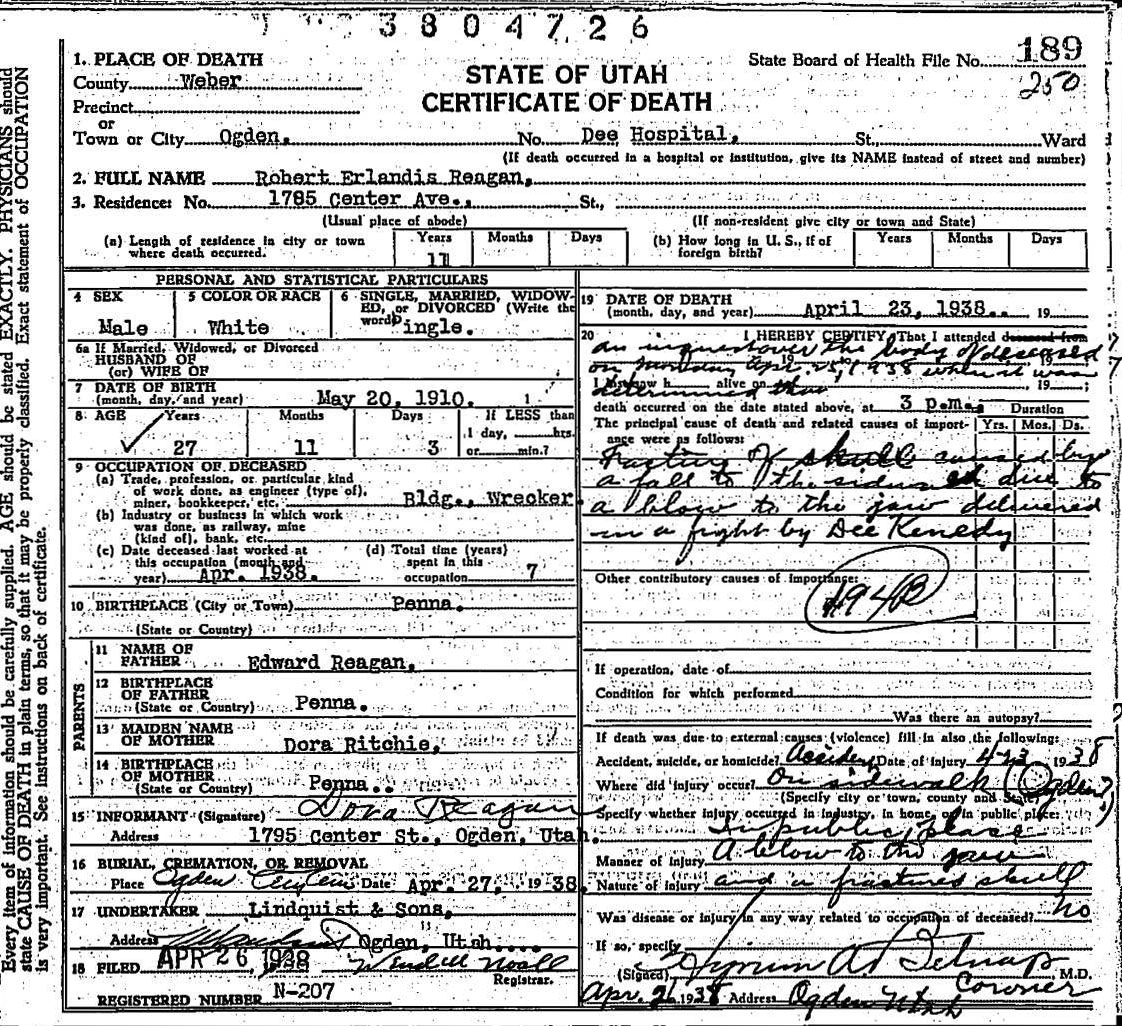 3804726
1. PLACE OF DEATH
County Weber
Precinct
or
Town or City Ogden. No. Dee Hospital, St., Ward
(If death occurred in a hospital or institution, give its NAME instead of street and number)
STATE OF UTAH
CERTIFICATE OF DEATH
State Board of Health File No. 189
250
2. FULL NAME Robert Erlandis Reagan,
3. Residence: No. 1785 Center Ave., St.,
(Usual place of abode) (If non-resident give city or town and State)
(a) Length of residence in city or town where death occurred. Years 11 Months Days
(b) How long in U. S., if of foreign birth? Years Months Days
PERSONAL AND STATISTICAL PARTICULARS
4 SEX Male
5 COLOR OR RACE White
6 SINGLE, MARRIED, WIDOWED, or DIVORCED (Write the word) Single.
6a If Married, Widowed, or Divorced
HUSBAND OF
(or) WIFE OF
7 DATE OF BIRTH
(month, day, and year) May 20, 1910.
8 AGE Years 27 Months 11 Days 3 If LESS than 1 day, hrs. or min.?
9 OCCUPATION OF DECEASED
(a) Trade, profession, or particular kind of work done, as engineer (type of), miner, bookkeeper, etc. Bldg., Wrecker.
(b) Industry or business in which work was done, as railway, mine (kind of), bank, etc.
(c) Date deceased last worked at this occupation (month and year) Apr. 1938.
(d) Total time (years) spent in this occupation 7
10 BIRTHPLACE (City or Town) Penna.
(State or Country)
PARENTS
11 NAME OF FATHER Edward Reagan,
12 BIRTHPLACE OF FATHER
(State or Country) Penna.
13 MAIDEN NAME OF MOTHER Dora Ritchie,
14 BIRTHPLACE OF MOTHER
(State or Country) Penna.
15 INFORMANT (Signature) Dora Reagan
Address 1795 Center St., Ogden, Utah.
16 BURIAL, CREMATION, OR REMOVAL
Place Ogden Date Apr. 27, 1938.
17 UNDERTAKER Lindquist & Sons,
Address Ogden, Utah....
18 FILED APR 26 1938 Wendell Noall
Registrar.
REGISTERED NUMBER N-207
19 DATE OF DEATH
(month, day, and year) April 23, 1938.. 19
20 I HEREBY CERTIFY, That I attended deceased from
an inquest over the body of deceased
on Monday Apr. 25, 1938 when it was
I last saw h alive on , 19 ;
determined that
death occurred on the date stated above, at 3 p.m. Duration
The principal cause of death and related causes of importance were as follows: Yrs. Mos. Ds.
Fracture of skull caused by
a fall to the sidewalk due to
a blow to the jaw delivered
in a fight by Dee Kenedy
Other contributory causes of importance:
194B
If operation, date of
Condition for which performed
Was there an autopsy?
If death was due to external causes (violence) fill in also the following:
Accident, suicide, or homicide? Accident Date of injury 4-23 1938
Where did injury occur? On sidewalk (Ogden)
(Specify city or town, county and State)
Specify whether injury occurred in industry, in home, or in public place:
In public place
Manner of injury A blow to the jaw
Nature of injury and a fractured skull
Was disease or injury in any way related to occupation of deceased? No
If so, specify
(Signed) Hyrum A Belnap M.D.
Coroner
Apr. 26 1938 Address Ogden Utah
Every item of information should be carefully supplied. AGE should be stated EXACTLY. PHYSICIANS should
state CAUSE OF DEATH in plain terms, so that it may be properly classified. Exact statement of OCCUPATION
is very important. See instructions on back of certificate.